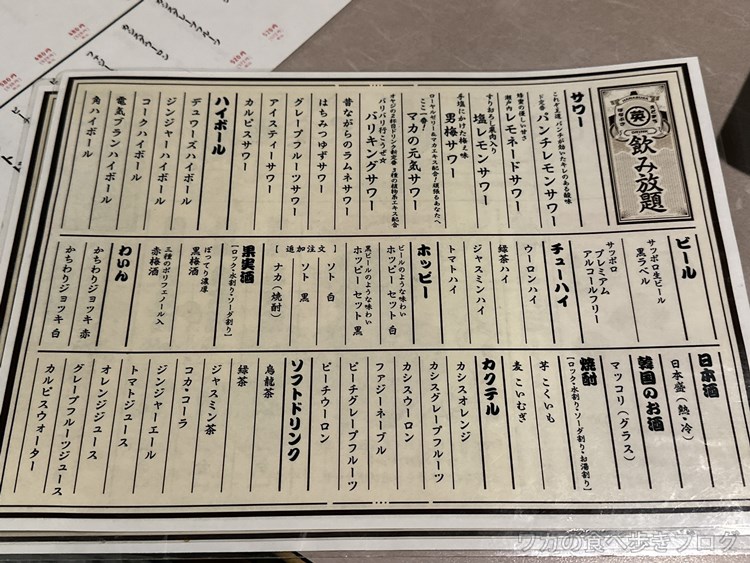 英
飲み放題
サワー
これぞ王道 パンチが効いたキレのある酸味
ド定番 パンチレモンサワー
蜂蜜の優しい甘さ
瀬戸内 レモネードサワー
すりおろし果肉入り
塩レモンサワー
手塩にかけた梅え味
男梅サワー
ローヤルゼリー&マカエキス配合!頑張るあなたへ
ここ一番! マカの元気サワー
オヤジの2杯目ドリンク初定番 3種の植物系エキス配合
バリバリ行こうぜ☆ バリキングサワー
昔ながらのラムネサワー
はちみつゆずサワー
グレープフルーツサワー
アイスティーサワー
カルピスサワー
ハイボール
デュワーズハイボール
ジンジャーハイボール
コークハイボール
電気ブランハイボール
角ハイボール
ビール
サッポロ生ビール
黒ラベル
サッポロ
プレミアム
アルコールフリー
チューハイ
ウーロンハイ
緑茶ハイ
ジャスミンハイ
トマトハイ
ホッピー
ビールのような味わい
ホッピーセット 白
黒ビールのような味わい
ホッピーセット 黒
【追加注文】
ソト 白
ソト 黒
ナカ(焼酎)
果実酒
【ロック・水割り・ソーダ割り】
ぽってり濃厚
黒梅酒
三種のポリフェノール入
赤梅酒
わいん
かちわりジョッキ 赤
かちわりジョッキ 白
日本酒
日本盛(熱・冷)
韓国のお酒
マッコリ(グラス)
焼酎
【ロック・水割り・ソーダ割り・お湯割り】
芋 こくいも
麦 こいむぎ
カクテル
カシスオレンジ
カシスグレープフルーツ
カシスウーロン
ファジーネーブル
ピーチグレープフルーツ
ピーチウーロン
ソフトドリンク
烏龍茶
緑茶
ジャスミン茶
コカ・コーラ
ジンジャーエール
トマトジュース
オレンジジュース
グレープフルーツジュース
カルピスウォーター
ワカの食べ歩きブログ